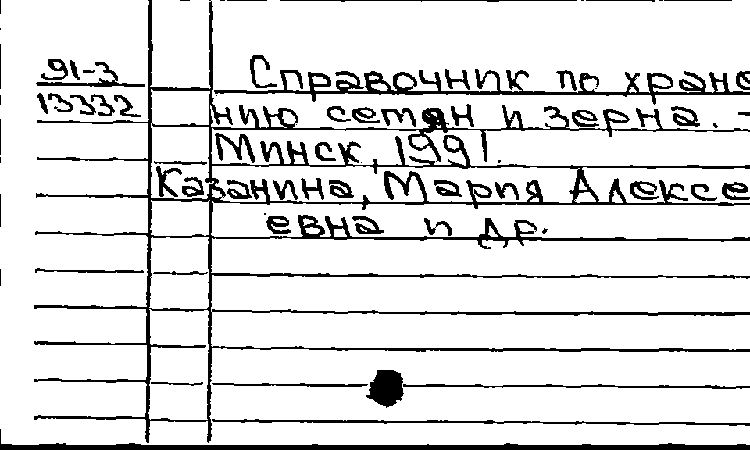 91-3
13332
Справочник по хране
нию семян и зерна. -
Минск, 1991.
Казанина, Мария Алексе
евна и др.